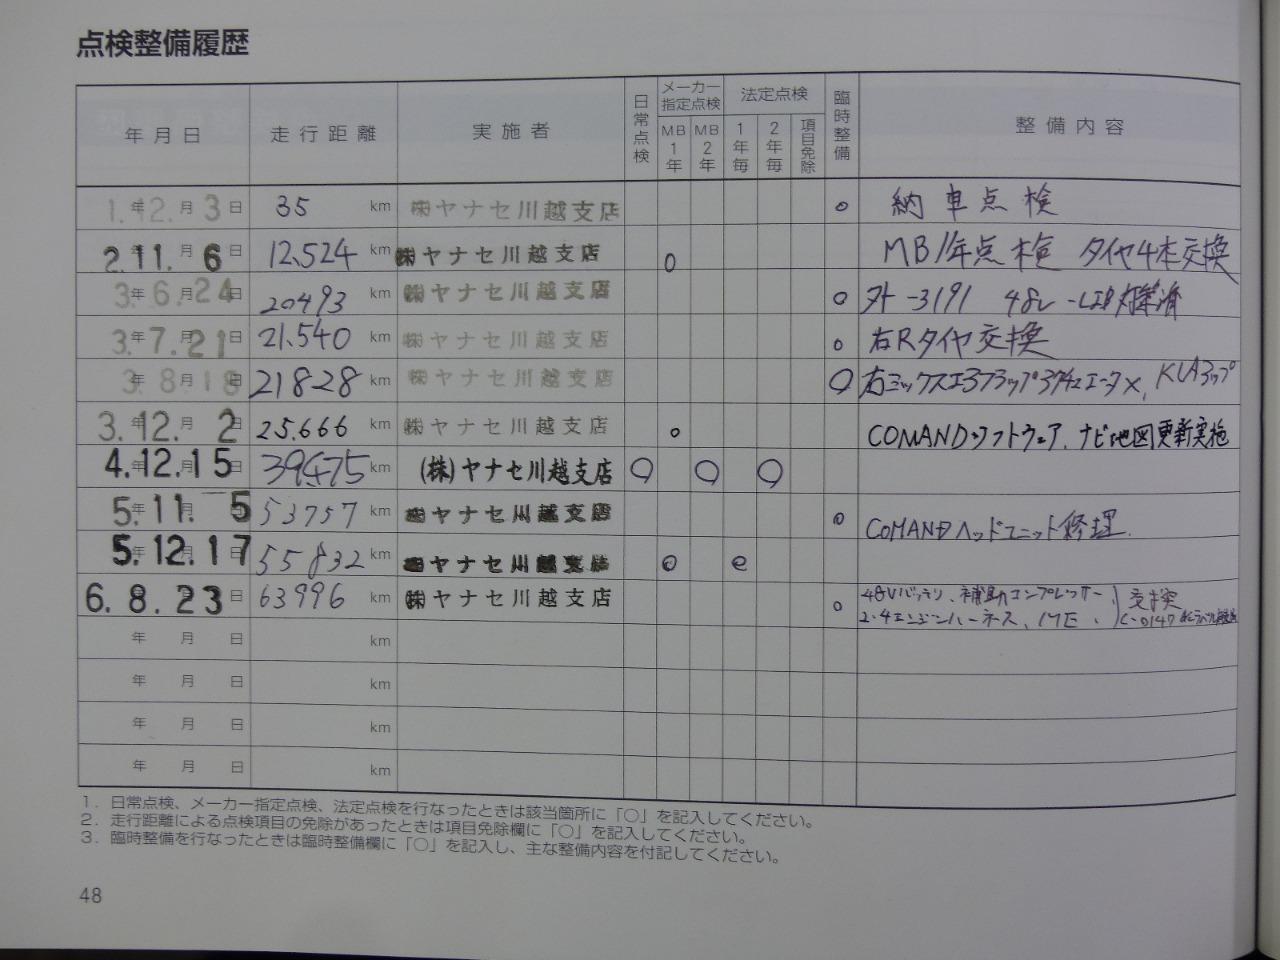 点検整備履歴
年月日 走行距離 実施者 日常点検 メーカー指定点検 MB1年 MB2年 法定点検 1年毎 2年毎 項目免除 臨時整備 整備内容
1.年12.月3日 35 km ㈱ヤナセ川越支店 ○ 納車点検
2.11.月6日 12,524 km ㈱ヤナセ川越支店 ○ MB1年点検 タイヤ4本交換
3.年6.月24日 20493 km ㈱ヤナセ川越支店 ○ -3191 48V
3.年7.月21日 21,540 km ㈱ヤナセ川越支店 ○ 右Rタイヤ交換
3.年8.月18日 21828 km ㈱ヤナセ川越支店 ○ 右ミックスエアフラップ
3.年12.月2日 25.666 km ㈱ヤナセ川越支店 ○ COMANDソフトウェア、ナビ地図更新実施
4.12.15日 39475 km (株)ヤナセ川越支店 ○ ○ ○
5.年11.月5日 53757 km ㈱ヤナセ川越支店 ○ COMANDヘッドユニット修理.
5.年12.月17日 55832 km ㈱ヤナセ川越支店 ○ ○
6.8.23日 63996 km ㈱ヤナセ川越支店 ○ 48Vバッテリ、補助コンプレッサー
2.4エンジンハーネス、 交換
年 月 日 km
年 月 日 km
年 月 日 km
年 月 日 km
1. 日常点検、メーカー指定点検、法定点検を行なったときは該当箇所に「○」を記入してください。
2. 走行距離による点検項目の免除があったときは項目免除欄に「○」を記入してください。
3. 臨時整備を行なったときは臨時整備欄に「○」を記入し、主な整備内容を付記してください。
48